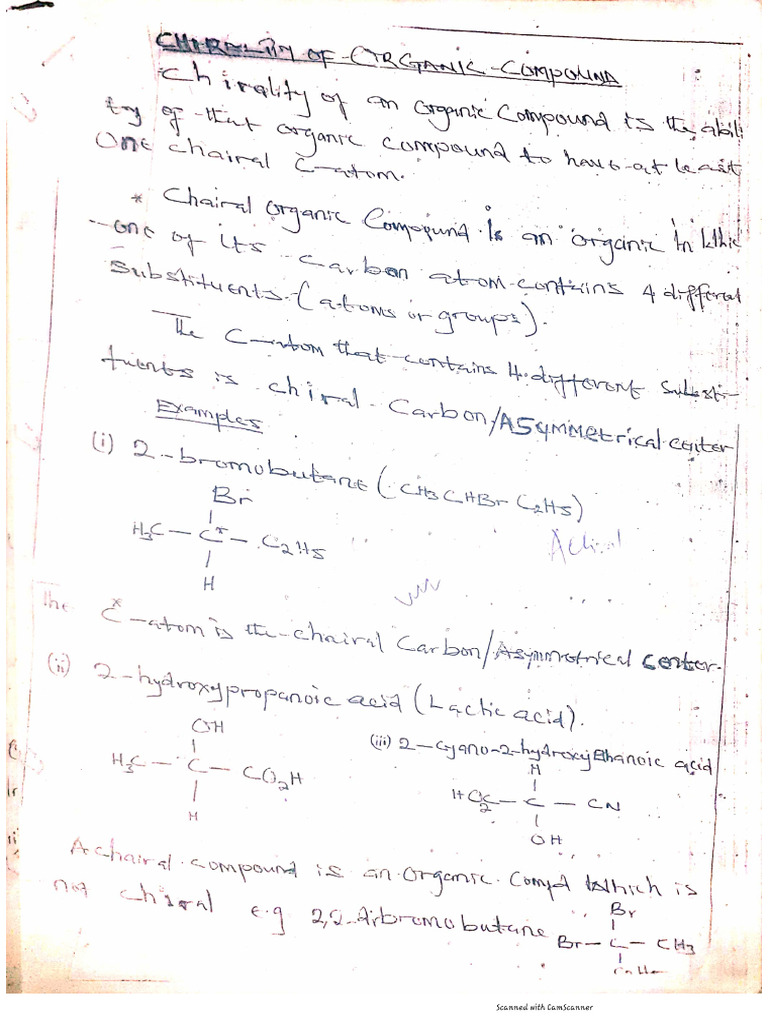 CHIRALITY OF ORGANIC COMPOUND
Chirality of an organic compound is the abili
ty of that organic compound to have at least
One chairal C-atom.
* Chairal organic Compound is an organic in which
one of its carbon atom contains 4 different
Substituents (atoms or groups).
The C-atom that contains 4 different substi-
tuents is chiral Carbon/Asymmetrical center
Examples
(i) 2-bromobutane (CH3CHBrC2H5)
Br
H3C – C* – C2H5
H
Achiral
The C*-atom is the chairal Carbon/Asymmetrical center.
(ii) 2-hydroxypropanoic acid (Lactic acid).
OH
H3C – C – CO2H
H
(iii) 2-Cyano-2-hydroxyEthanoic acid
H
HO2C – C – CN
OH
Achairal compound is an organic compd which is
not chiral e.g 2,2-dibromobutane
Br
Br – C – CH3
Scanned with CamScanner